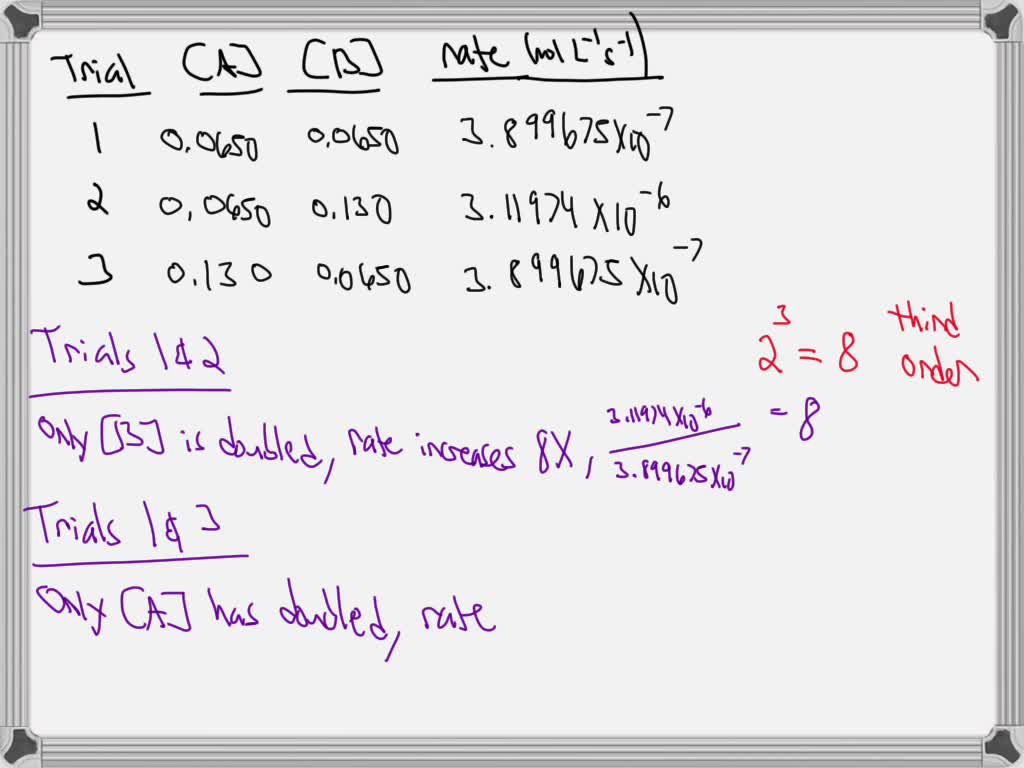 Trial [A] [B] rate (mol L⁻¹s⁻¹)
1 0.0650 0.0650 3.899675×10⁻⁷
2 0.0650 0.130 3.11974×10⁻⁶
3 0.130 0.0650 3.899675×10⁻⁷
2³ = 8 third order
Trials 1&2
Only [B] is doubled, rate increases 8X, 3.11974×10⁻⁶ / 3.899675×10⁻⁷ = 8
Trials 1&3
Only [A] has doubled, rate